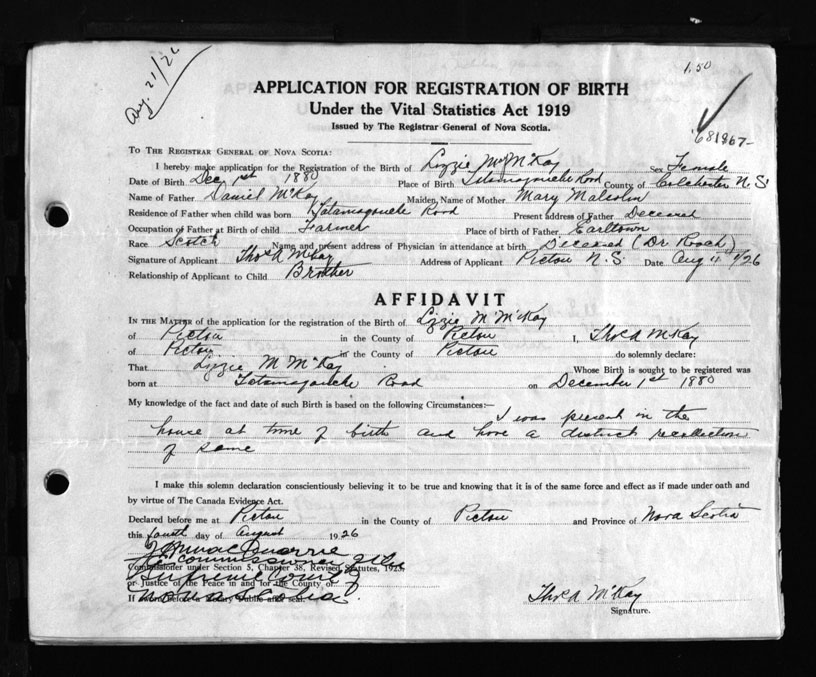 Aug. 21/26
1.50
APPLICATION FOR REGISTRATION OF BIRTH
Under the Vital Statistics Act 1919
Issued by The Registrar General of Nova Scotia.
681967-
TO THE REGISTRAR GENERAL OF NOVA SCOTIA:
I hereby make application for the Registration of the Birth of Lizzie M McKay Sex Female
Date of Birth Dec 1st 1880 Place of Birth Tatamagouche Road County of Colchester N.S.
Name of Father Daniel McKay Maiden Name of Mother Mary Malcolm
Residence of Father when child was born Tatamagouche Road Present address of Father Deceased
Occupation of Father at Birth of child Farmer Place of birth of Father Earltown
Race Scotch Name and present address of Physician in attendance at birth Deceased (Dr Roach)
Signature of Applicant Thos A McKay Address of Applicant Pictou N.S. Date Aug 4 1926
Relationship of Applicant to Child Brother
AFFIDAVIT
IN THE MATTER of the application for the registration of the Birth of Lizzie M McKay
of Pictou in the County of Pictou I, Thos A McKay
of Pictou in the County of Pictou do solemnly declare:
That Lizzie M McKay Whose Birth is sought to be registered was
born at Tatamagouche Road on December 1st 1880
My knowledge of the fact and date of such Birth is based on the following Circumstances:— I was present in the
house at time of birth and have a distinct recollection
of same
I make this solemn declaration conscientiously believing it to be true and knowing that it is of the same force and effect as if made under oath and
by virtue of The Canada Evidence Act.
Declared before me at Pictou in the County of Pictou and Province of Nova Scotia
this fourth day of August 1926
A Commissioner of the
Commissioner under Section 5, Chapter 38, Revised Statutes, 1923
Supreme Court of
or Justice of the Peace in and for the County of
Nova Scotia
If sworn before a Notary Public add seal.
Thos A McKay
Signature.